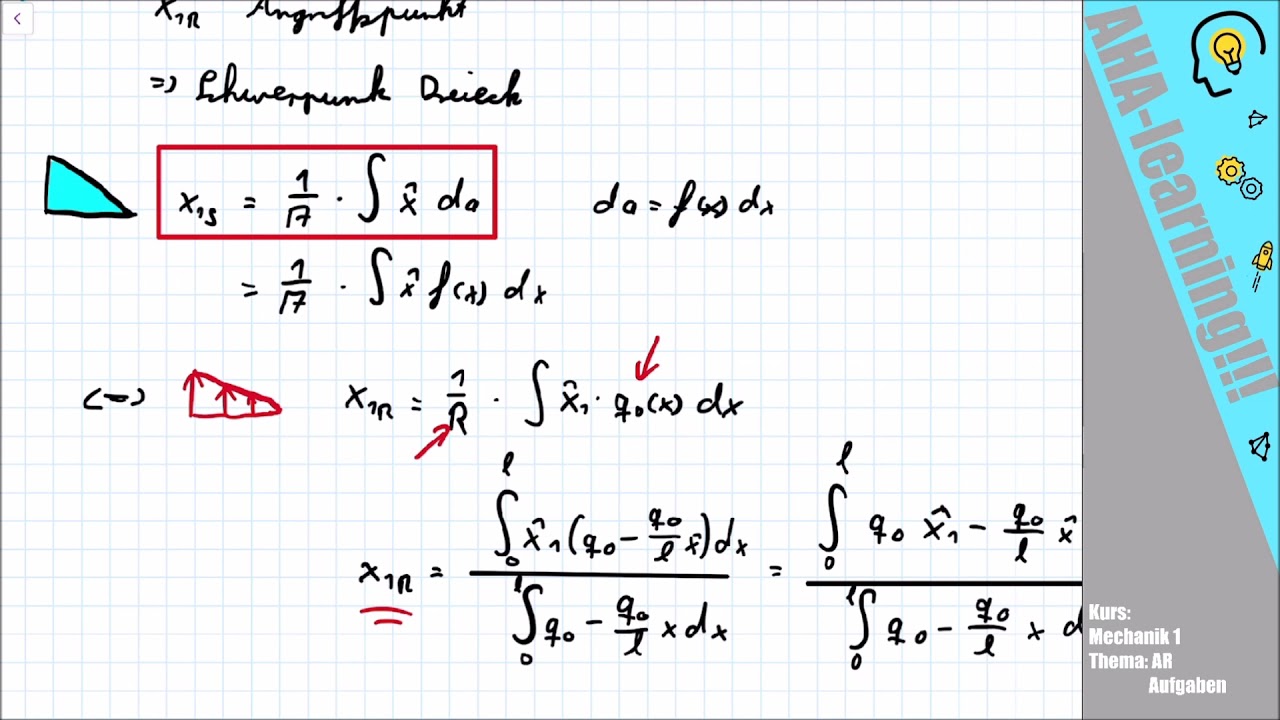 x₁R Angriffspunkt
=> Schwerpunk Dreieck
x₁s = 1/A · ∫ x̂ da da = f(x) dx
= 1/A · ∫ x̂ f(x) dx
<-> x₁R = 1/R · ∫ x̂₁ · q₀(x) dx
x₁R = ∫₀ˡ x̂₁(q₀ - q₀/l x̂)dx / ∫₀ˡ q₀ - q₀/l x dx = ∫₀ˡ q₀ x̂₁ - q₀/l x̂ / ∫₀ˡ q₀ - q₀/l x d
AHA-learning!!!
Kurs:
Mechanik 1
Thema: AR
Aufgaben